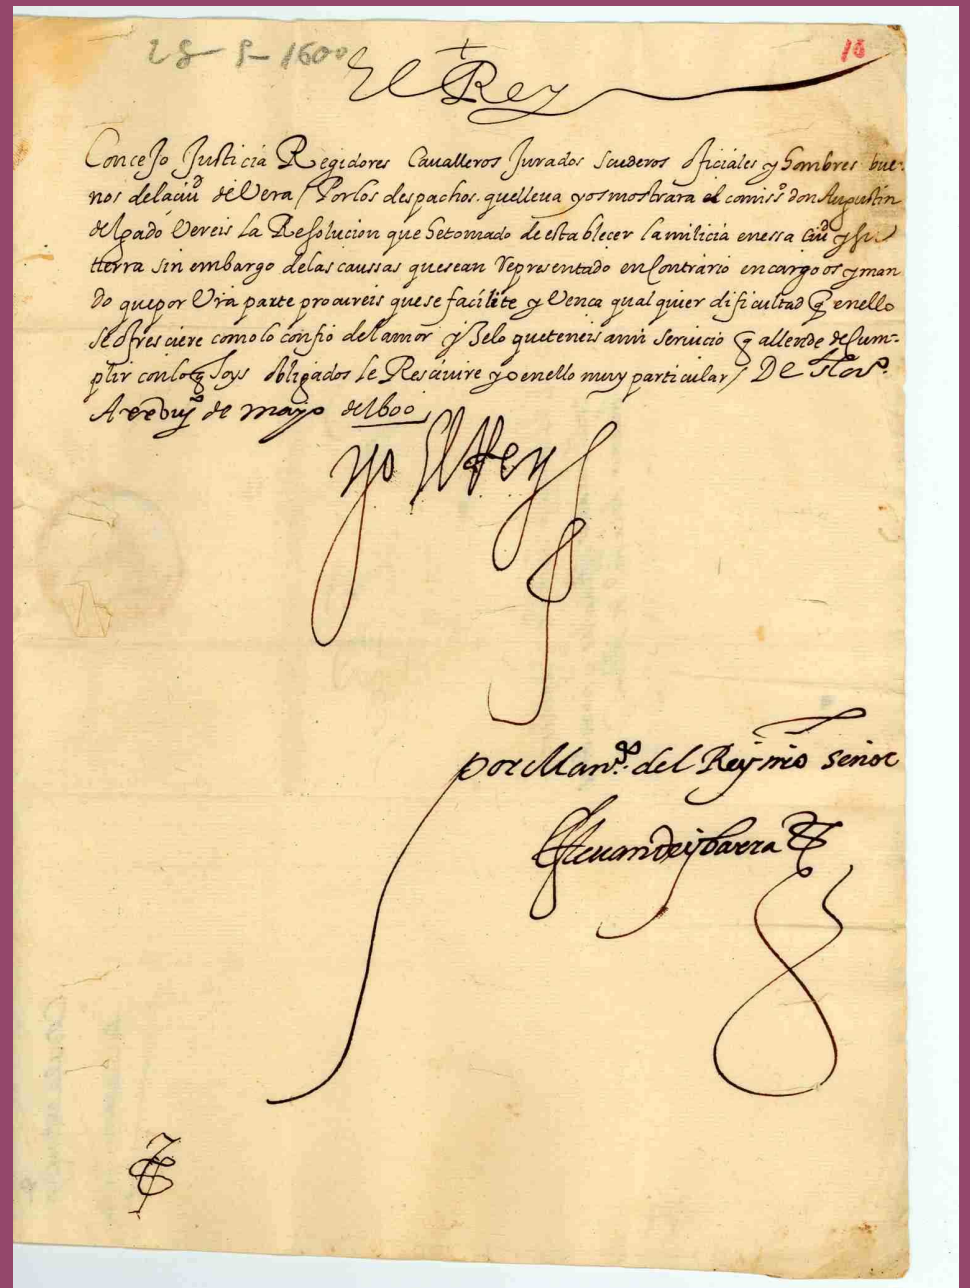 28-5-1600
16
El Rey
Concejo Justicia Regidores Cavalleros Jurados scuderos officiales y hombres bue-
nos de la ciud de Vera / Por los despachos que lleva y os mostrara el comiss.º don Augustin
delgado Vereis La Resolucion que he tomado de establecer la milicia en essa ciud y su
tierra sin embargo de las caussas que se an Representado en Contrario encargo os y man
do que por Vra parte procureis que se facilite y Vença qualquier dificultad q̃ en ello
se ofresciere como lo confio del amor y Zelo que teneis a mi servicio q̃ allende de Cum-
plir con lo q̃ soys obligados le Rescivire yo en ello muy particular / De
A de mayo de 1600
yo El Rey
por Man.do del Rey nro señor
Estevan de ybarra